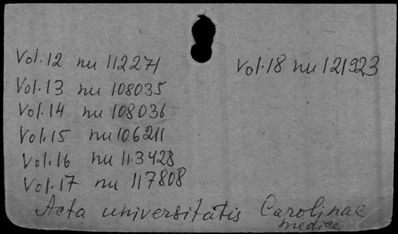 Vol.12 nu 112271
Vol.18 nu 121923
Vol.13 nu 108035
Vol.14 nu 108036
Vol.15 nu 106211
Vol.16 nu 113428
Vol.17 nu 117808
Acta universitatis Carolinae
medica